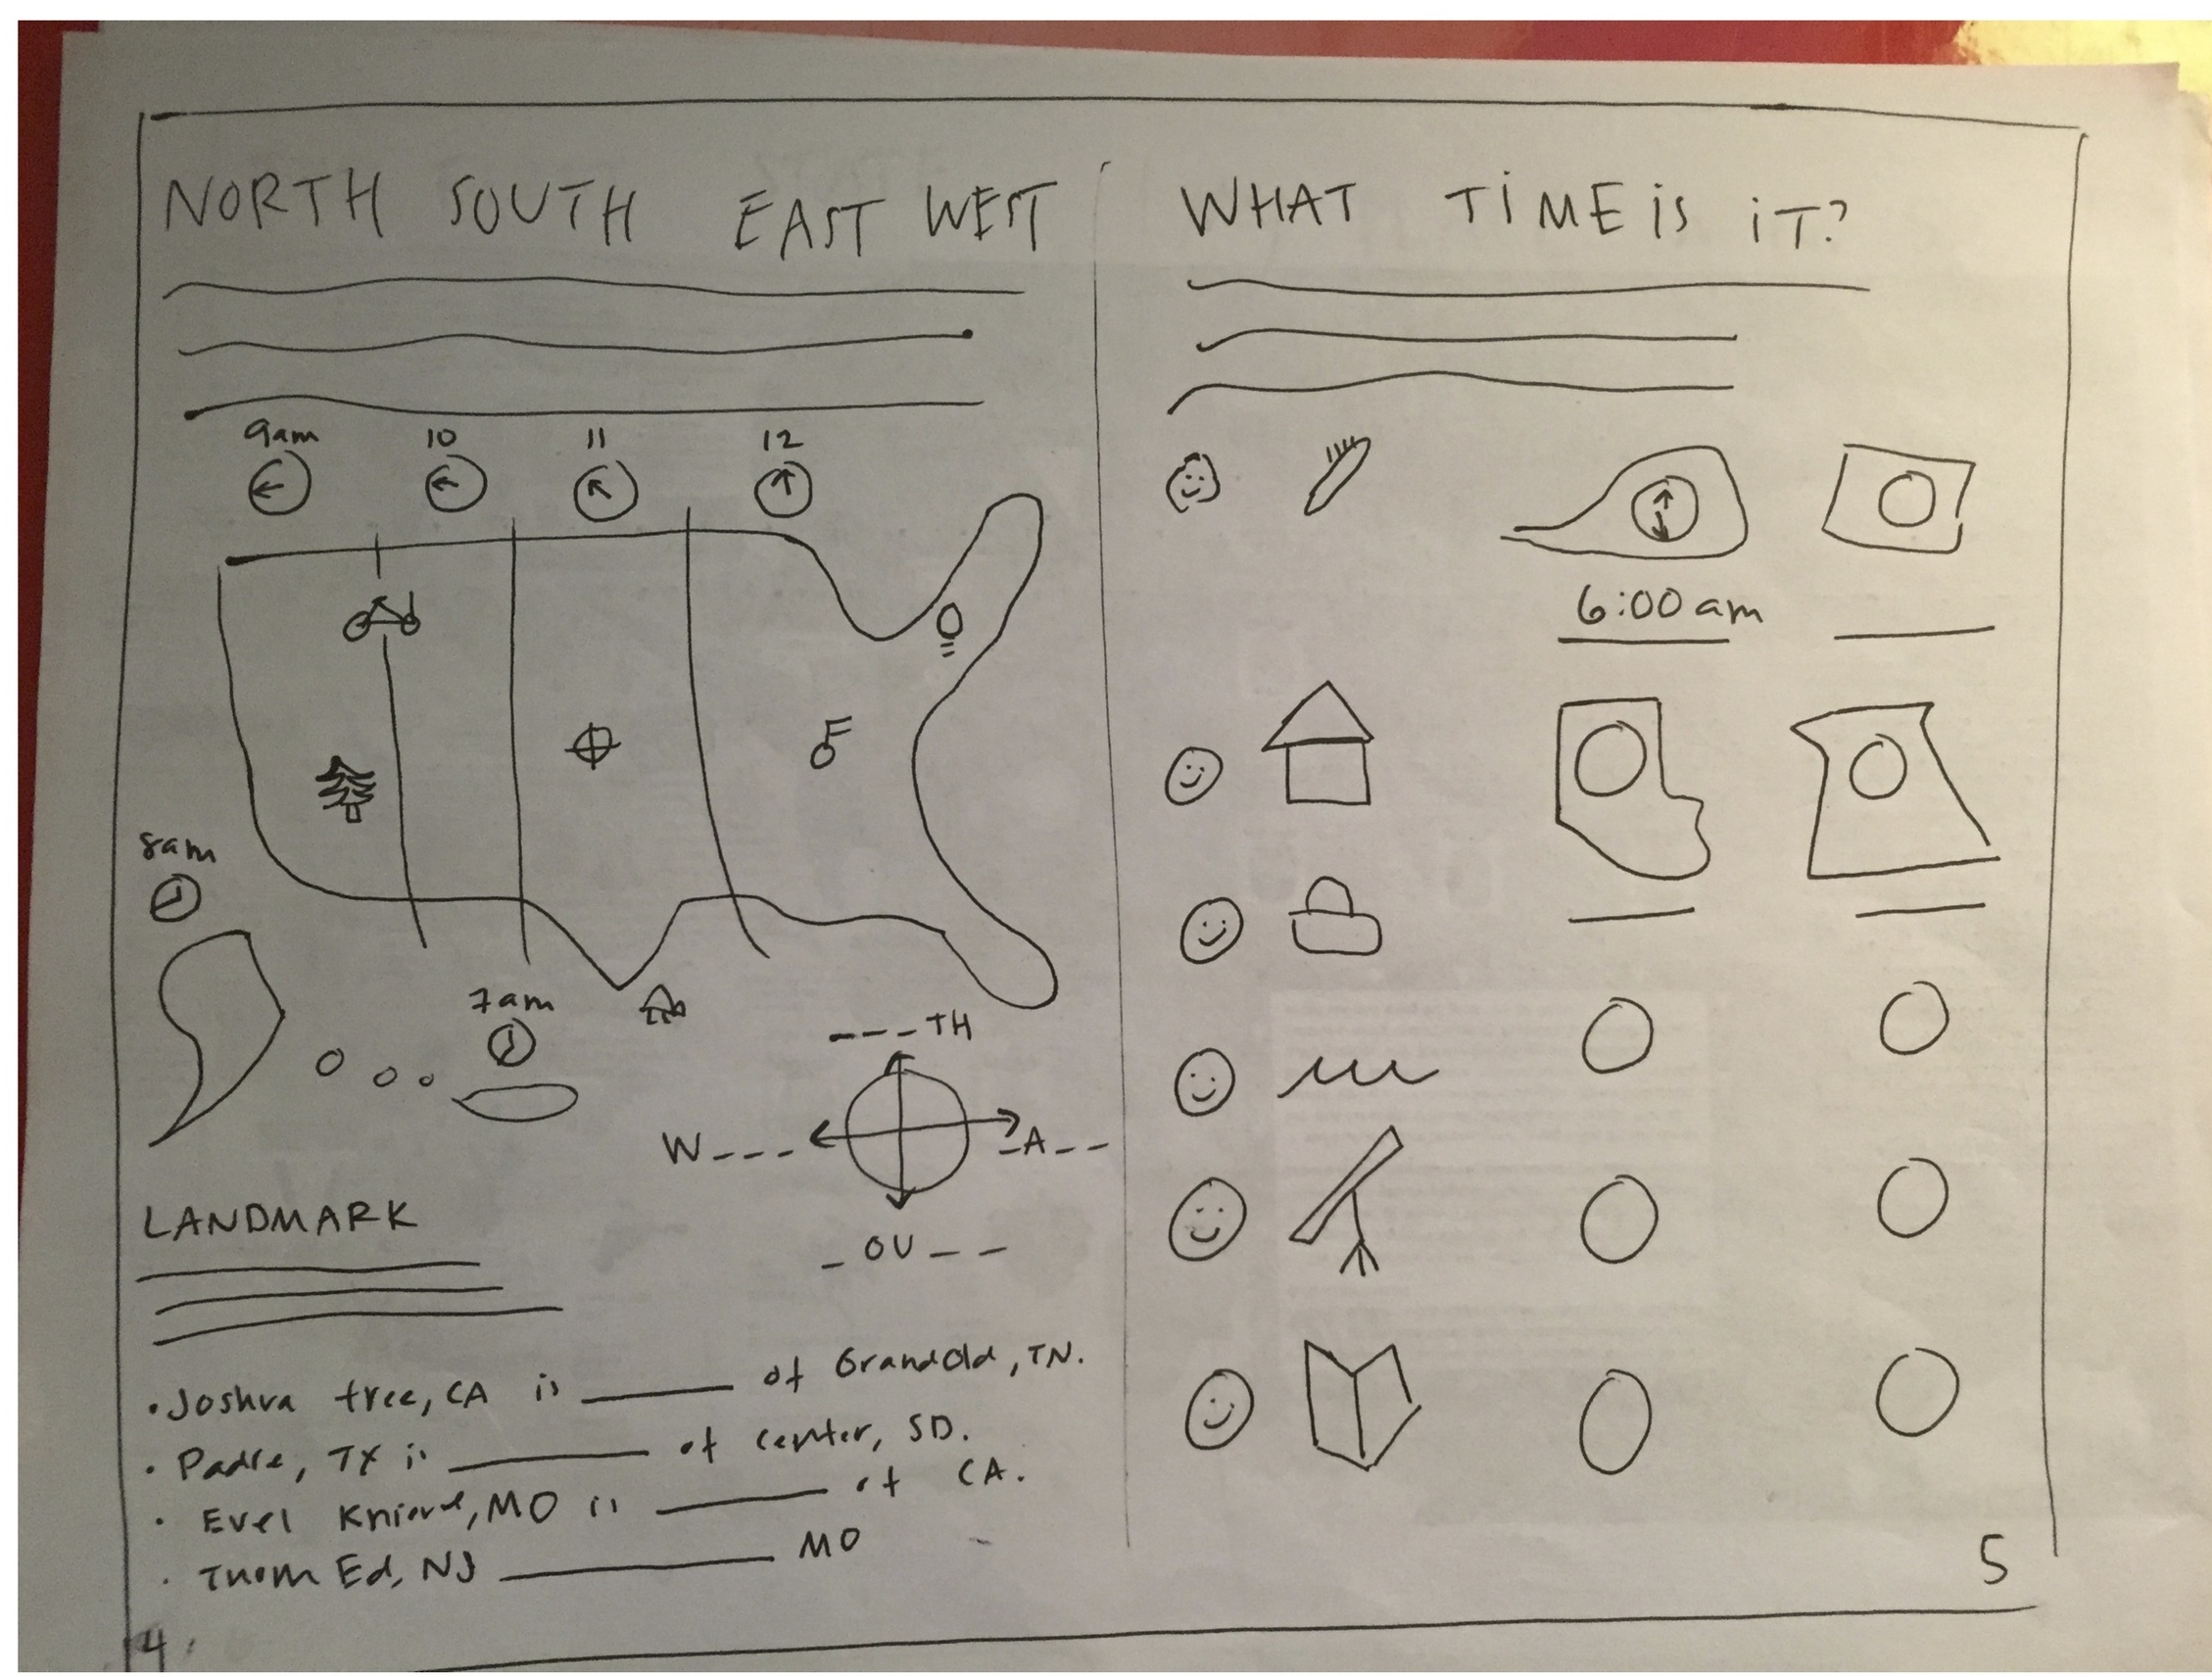 NORTH SOUTH EAST WEST
9am 10 11 12
8am
7am
___TH
W___ _A__
_OU__
LANDMARK
• Joshua tree, CA is ______ of GrandOld, TN.
• Padre, TX is ______ of center, SD.
• Evel Knievel, MO is ______ of CA.
• Thom Ed, NJ ______ MO
4
WHAT TiME is iT?
6:00 am
5